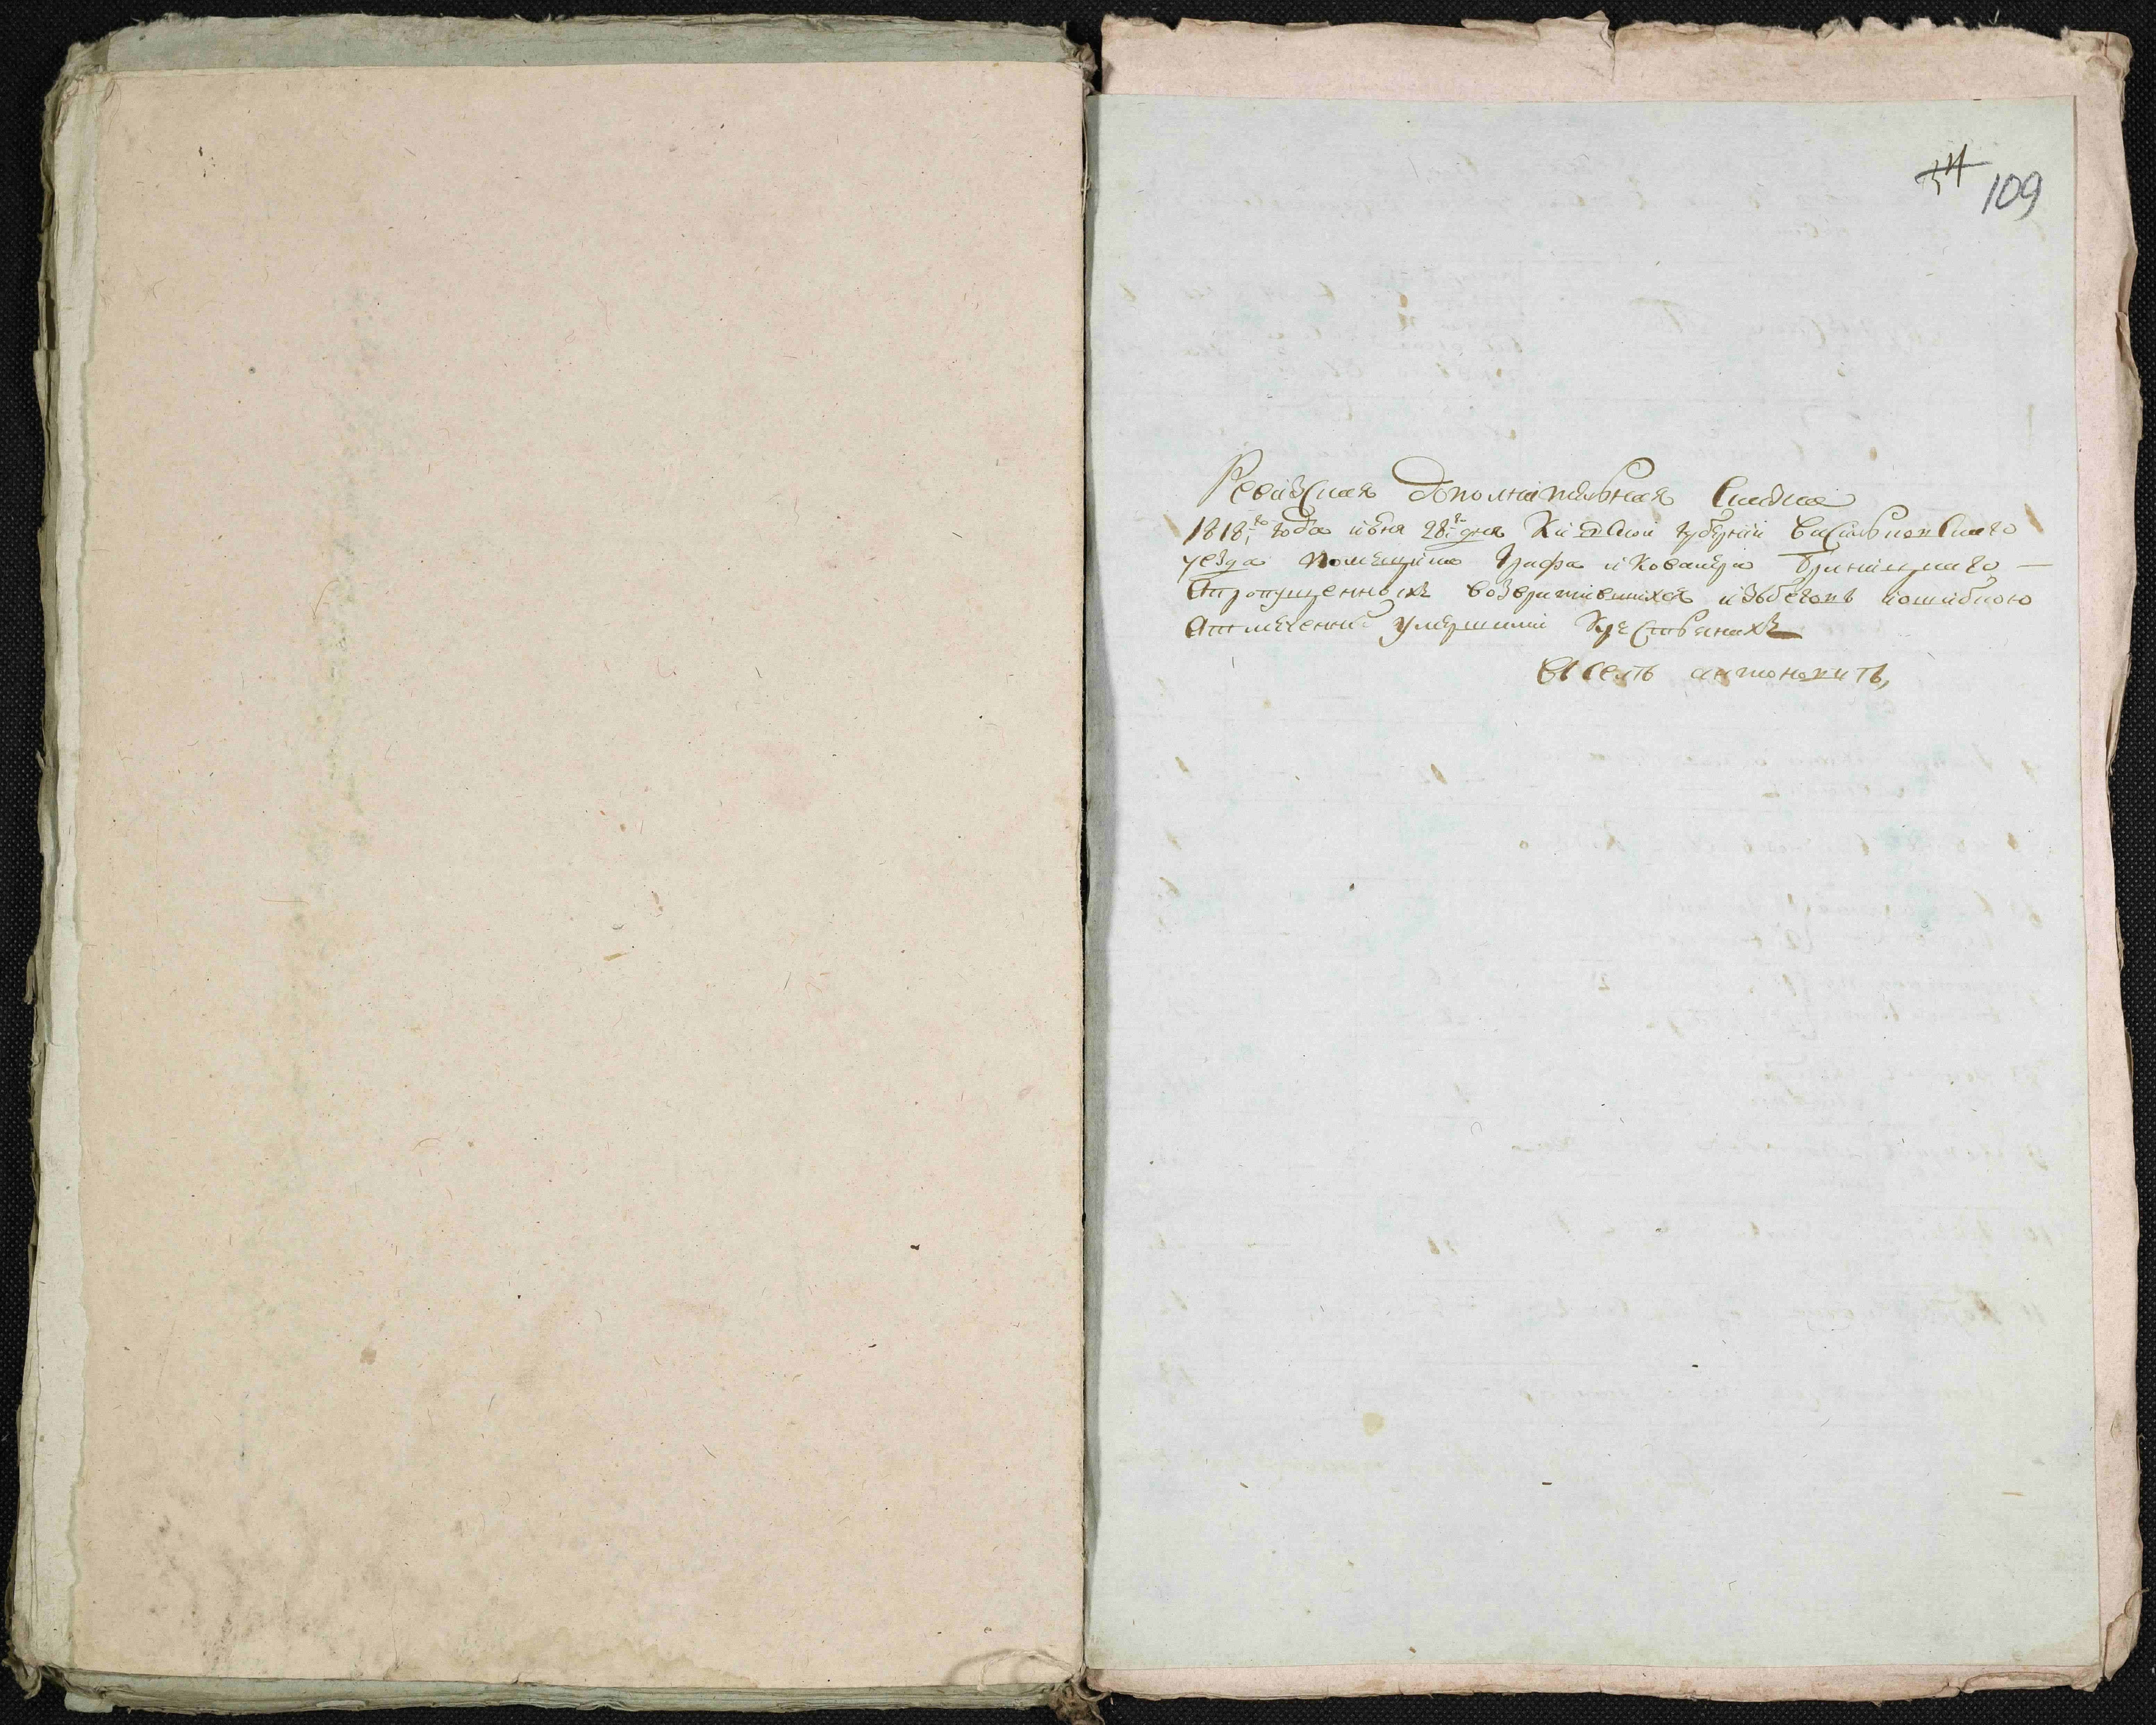 109
Ревизская дополнительная Сказка
1818го года июня 28го дня Киевской губернии Васильковского
уезда помещика Графа и Ковалера Браницкаго —
Опропущенных возвратившихся избегов иошибкою
Отмеченных умершими Крестьянахъ
В селъ антоновкъ,